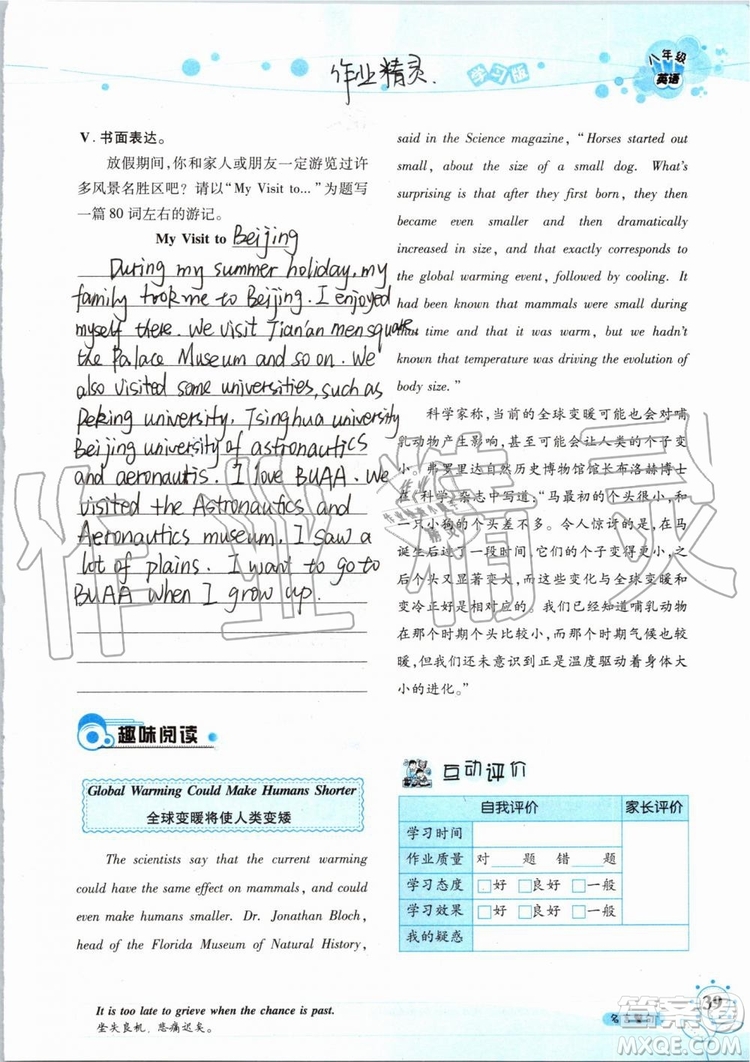 作业精灵.
学习版
八年级
英语
V. 书面表达。
放假期间,你和家人或朋友一定游览过许
多风景名胜区吧?请以“My Visit to...”为题写
一篇 80 词左右的游记。
My Visit to Beijing
During my summer holiday, my
family took me to Beijing. I enjoyed
myself there. We visit Tian'an men square,
the Palace Museum and so on. We
also visited some universities, such as
Peking university, Tsinghua university
Beijing university of astronautics
and aeronautis. I love BUAA. We
visited the Astronautics and
Aeronautics museum. I saw a
lot of plains. I want to go to
BUAA when I grow up.
趣味阅读
Global Warming Could Make Humans Shorter
全球变暖将使人类变矮
The scientists say that the current warming
could have the same effect on mammals, and could
even make humans smaller. Dr. Jonathan Bloch,
head of the Florida Museum of Natural History,
said in the Science magazine, “Horses started out
small, about the size of a small dog. What's
surprising is that after they first born, they then
became even smaller and then dramatically
increased in size, and that exactly corresponds to
the global warming event, followed by cooling. It
had been known that mammals were small during
that time and that it was warm, but we hadn't
known that temperature was driving the evolution of
body size.”
科学家称,当前的全球变暖可能也会对哺
乳动物产生影响,甚至可能会让人类的个子变
小。弗罗里达自然历史博物馆馆长布洛赫博士
在《科学》杂志中写道:“马最初的个头很小,和
一只小狗的个头差不多。令人惊讶的是,在马
诞生后过了一段时间,它们的个子变得更小,之
后个头又显著变大,而这些变化与全球变暖和
变冷正好是相对应的。我们已经知道哺乳动物
在那个时期个头比较小,而那个时期气候也较
暖,但我们还未意识到正是温度驱动着身体大
小的进化。”
互动评价
自我评价 家长评价
学习时间
作业质量 对 题 错 题
学习态度 □好 □良好 □一般
学习效果 □好 □良好 □一般
我的疑惑
It is too late to grieve when the chance is past.
坐失良机,悲痛迟矣。
39
名言警句
作业精灵
答案圈
MXQE.COM